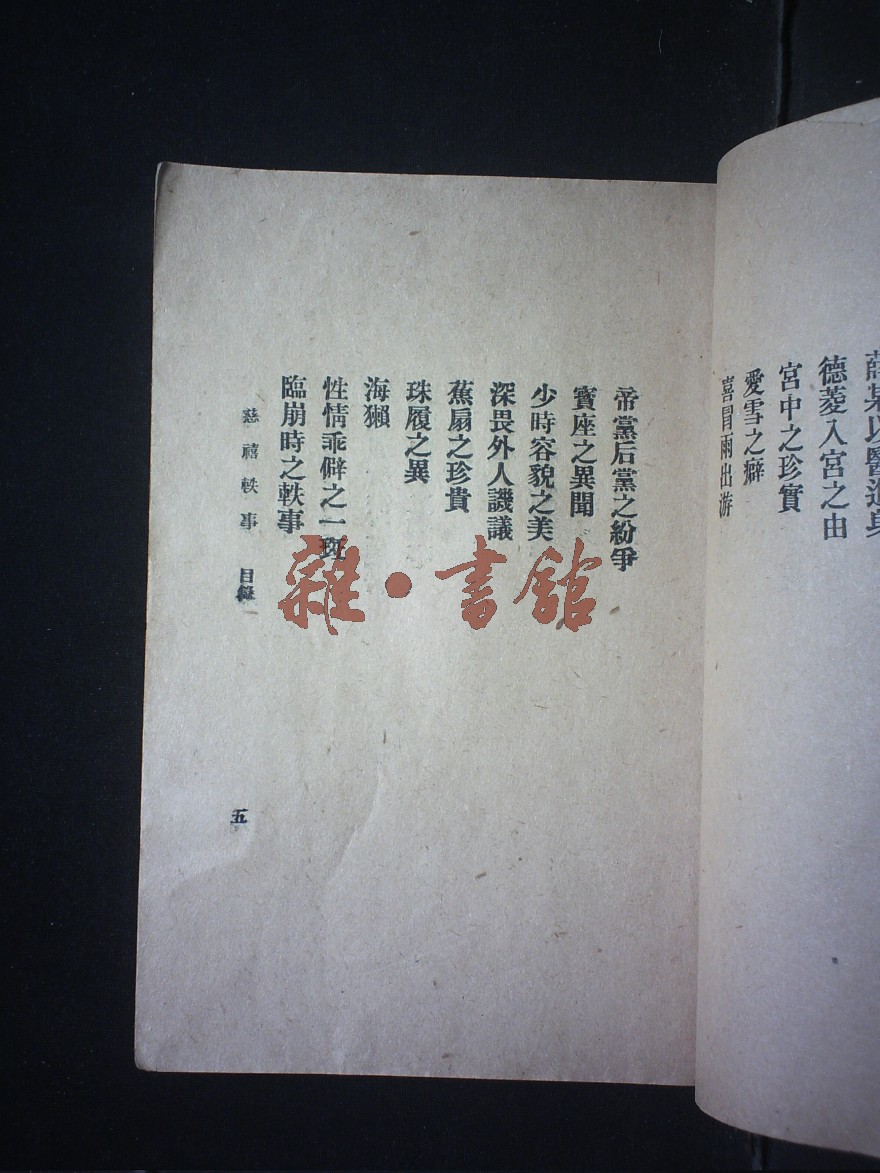 薛某以醫進身
德菱入宮之由
宮中之珍實
愛雪之癖
喜冒雨出游
帝黨后黨之紛爭
寶座之異聞
少時容貌之美
深畏外人譏議
蕉扇之珍貴
珠履之異
海獺
性情乖僻之一斑
臨崩時之軼事
慈禧軼事 目錄
五
雜·書館